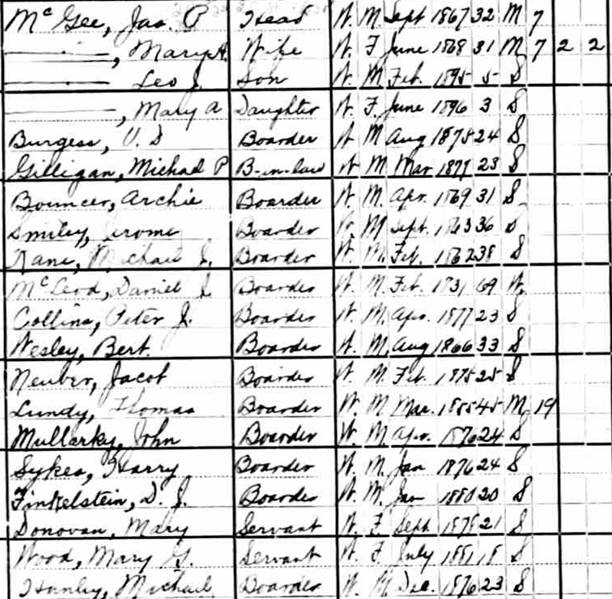 McGee, Jas. P Head W. M Sept 1867 32 M 7
———, Mary A. Wife W. F June 1868 31 M 7 2 2
——— Leo J. Son W. M Feb. 1895 5 S
———, Mary A Daughter W. F. June 1896 3 S
Burgess, U. S Boarder W M Aug 1875 24 S
Gilligan, Michael P B-in-law W M Mar 1877 23 S
Bouncer, Archie Boarder W. M. Apr. 1869 31 S
Smiley, Jerome Boarder W. M Sept. 1863 36 S
Kane, Michael J. Boarder W. M. Feb. 1862 38 S
McLeod, Daniel J Boarder W. M. Feb. 1831 69 W.
Collins, Peter J. Boarder W. M Apr. 1877 23 S
Wesley, Bert. Boarder W. M, Aug 1866 33 S
Neuber, Jacob Boarder W. M Feb. 1875 25 S
Lundy, Thomas Boarder W. M Mar. 1855 45 M 19
Mullarky, John Boarder W. M Apr. 1876 24 S
Sykes, Harry Boarder W. M. Jan 1876 24 S
Finkelstein, D. J. Boarder W. M. Jan 1880 20 S
Donovan, Mary Servant W. F. Sept 1878 21 S
Wood, Mary G. Servant W. F. July 1881 18 S
Hanley, Michael Boarder W. M Dec. 1876 23 S